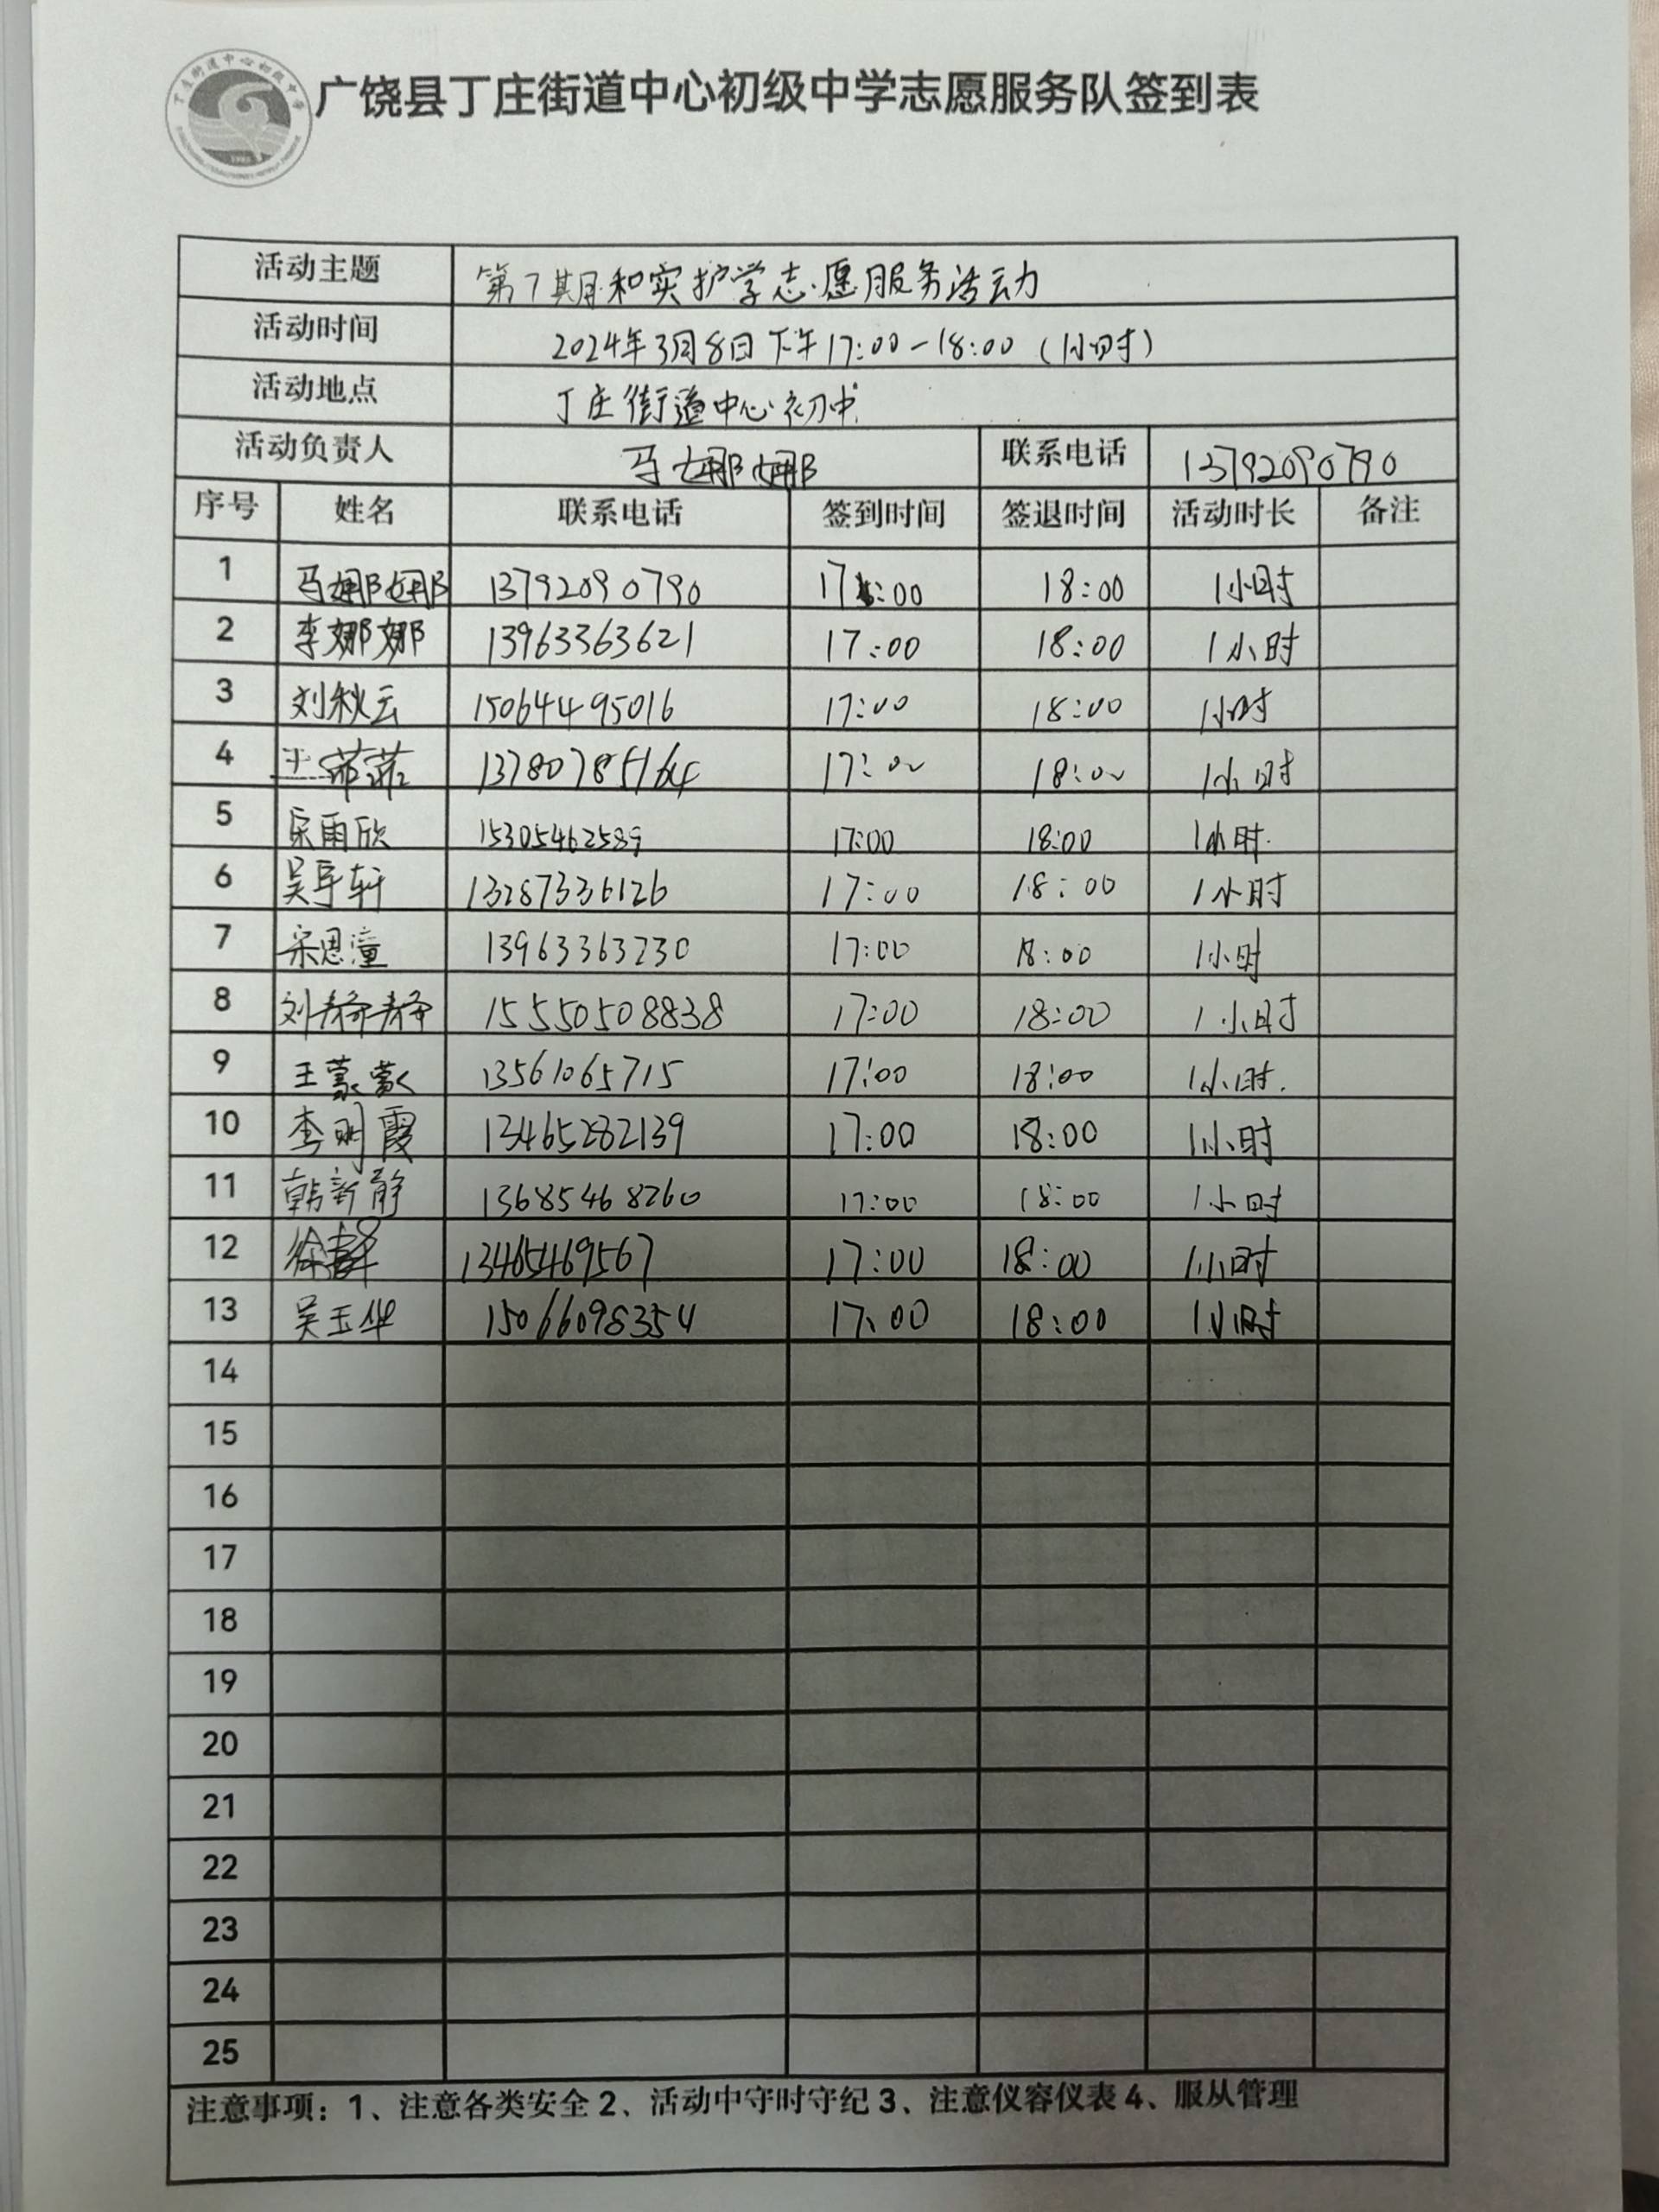 广饶县丁庄街道中心初级中学志愿服务队签到表
活动主题 第7期和实护学志愿服务活动
活动时间 2024年3月8日下午17:00-18:00（1小时）
活动地点 丁庄街道中心初中
活动负责人 马娜娜 联系电话 13792090790
序号 姓名 联系电话 签到时间 签退时间 活动时长 备注
1 马娜娜 13792090790 17:00 18:00 1小时
2 李娜娜 13963363621 17:00 18:00 1小时
3 刘秋云 15064495016 17:00 18:00 1小时
4 王菲菲 13780785164 17:00 18:00 1小时
5 宋雨欣 15305462589 17:00 18:00 1小时
6 吴宇轩 13287336126 17:00 18:00 1小时
7 宋思潼 13963363230 17:00 18:00 1小时
8 刘静静 15550508838 17:00 18:00 1小时
9 王蒙蒙 13561065715 17:00 18:00 1小时
10 李明霞 13465282139 17:00 18:00 1小时
11 韩新静 13685468260 17:00 18:00 1小时
12 徐 13465469567 17:00 18:00 1小时
13 吴玉华 15066098354 17:00 18:00 1小时
14
15
16
17
18
19
20
21
22
23
24
25
注意事项：1、注意各类安全2、活动中守时守纪3、注意仪容仪表4、服从管理